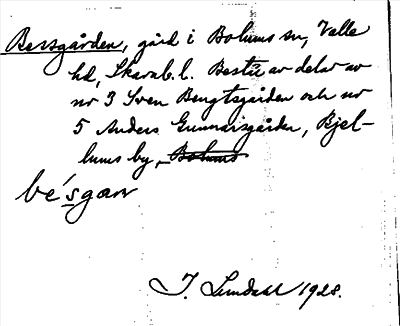 Bessgården, gård i Bolums sn, Valle
hd, Skarab. l. Består av delar av
nr 3 Sven Bengtsgården och nr
5 Anders Gunnarsgården, Bjel-
lums by, Bolums
be´sgaɷ
J. Lundahl 1928.